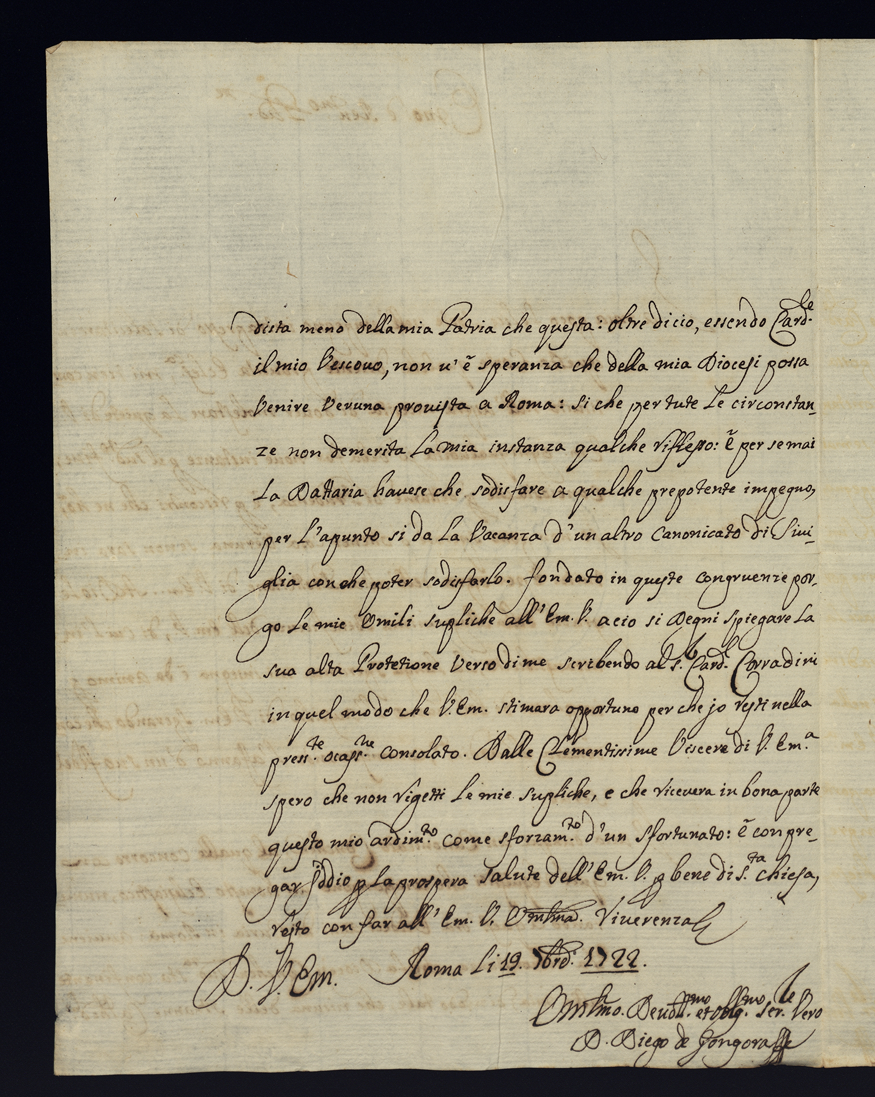 dista meno della mia Patria che questa: oltre di cio, essendo Card.le
il mio Vescovo, non v'è speranza che della mia Diocesi possa
Venire Veruna provista a Roma: si che per tute le circonstan-
ze non demerita la mia instanza qualche riflesso: è per se mai
la Dattaria havese che sodisfare a qualche prepotente impegno,
per l'apunto si da la Vacanza d'un altro Canonicato di Sivi-
glia con che poter sodisfarlo. fondato in queste congruenze por-
go le mie Umili supliche all'Em. V. acio si Degni spiegare la
sua alta Protetione verso di me scribendo al S. Card. Corradini
in quel modo che V. Em. stimara opportuno perche jo resti nella
presn.te ocass.ne Consolato. Dalle Clementissime Viscere di V. Em.a
spero che non rigetti le mie supliche, e che ricevera in bona parte
questo mio ardim.to come sforzam.to d'un sfortunato: è con pre-
gar Iddio p la prospera Salute dell'Em. V. p bene di S.ta chiesa,
resto con far all'Em. V. Umilma. riverenza
D. V. Em. Roma li 19. 1722.
Umilmo. Devot.mo et oblig.mo Ser.le Vero
D. Diego de Gongora